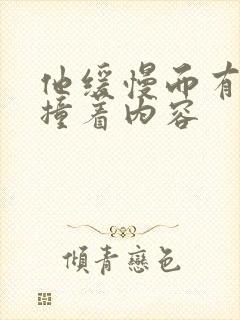 他缓慢而有
撞着内容
倾青恋色